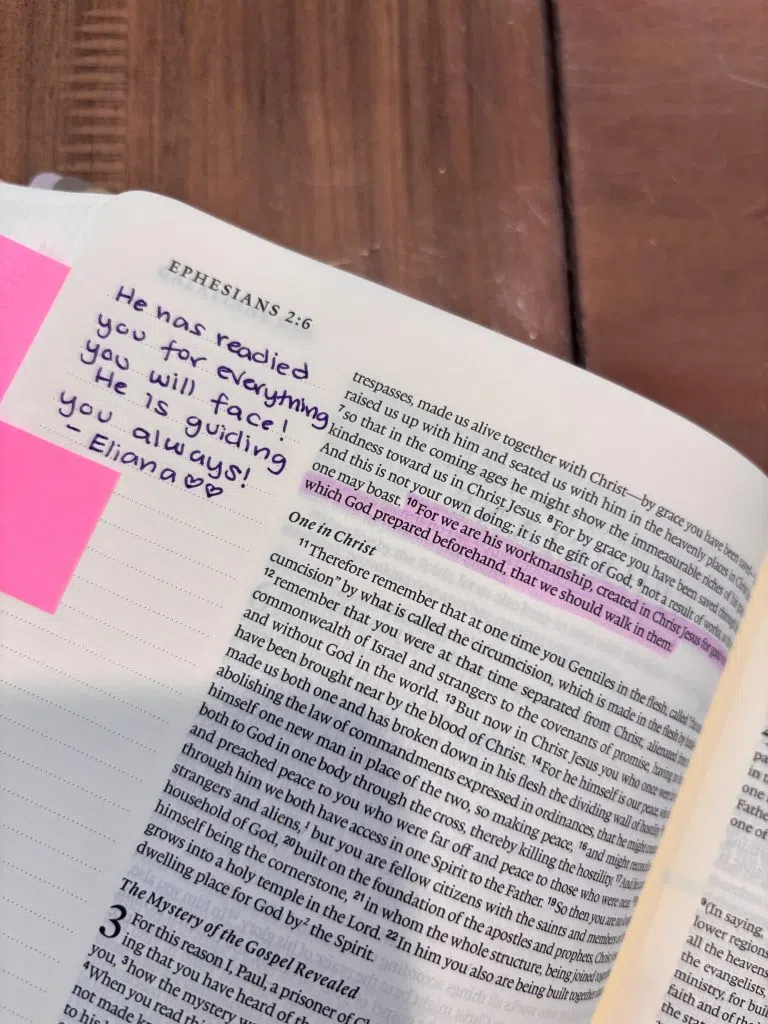 EPHESIANS 2:6
He has readied
you for everything
you will face!
He is guiding
you always!
- Eliana♡♡
trespasses, made us alive together with Christ—by grace you have been saved—
raised us up with him and seated us with him in the heavenly places in Christ
7so that in the coming ages he might show the immeasurable riches of his
kindness toward us in Christ Jesus. 8For by grace you have been saved through
And this is not your own doing; it is the gift of God, 9not a result of works, so
one may boast. 10For we are his workmanship, created in Christ Jesus for good
which God prepared beforehand, that we should walk in them.
One in Christ
11Therefore remember that at one time you Gentiles in the flesh, called "the
cumcision" by what is called the circumcision, which is made in the flesh by
12remember that you were at that time separated from Christ, alienated
commonwealth of Israel and strangers to the covenants of promise, having
and without God in the world. 13But now in Christ Jesus you who once were
have been brought near by the blood of Christ. 14For he himself is our peace,
made us both one and has broken down in his flesh the dividing wall of hostility
abolishing the law of commandments expressed in ordinances, that he might
himself one new man in place of the two, so making peace, 16and might
both to God in one body through the cross, thereby killing the hostility. 17And he
and preached peace to you who were far off and peace to those who were
through him we both have access in one Spirit to the Father. 19So then you are no
strangers and aliens,1 but you are fellow citizens with the saints and members
household of God, 20built on the foundation of the apostles and prophets, Christ
himself being the cornerstone, 21in whom the whole structure, being joined together
grows into a holy temple in the Lord. 22In him you also are being built together
dwelling place for God by2 the Spirit.
The Mystery of the Gospel Revealed
3 For this reason I, Paul, a prisoner of
ing that you have heard of the
you, 3how the mystery
4When you read this
not made
to his
9(In saying,
lower regions
all the heavens
the evangelists,
ministry, for
faith and of the